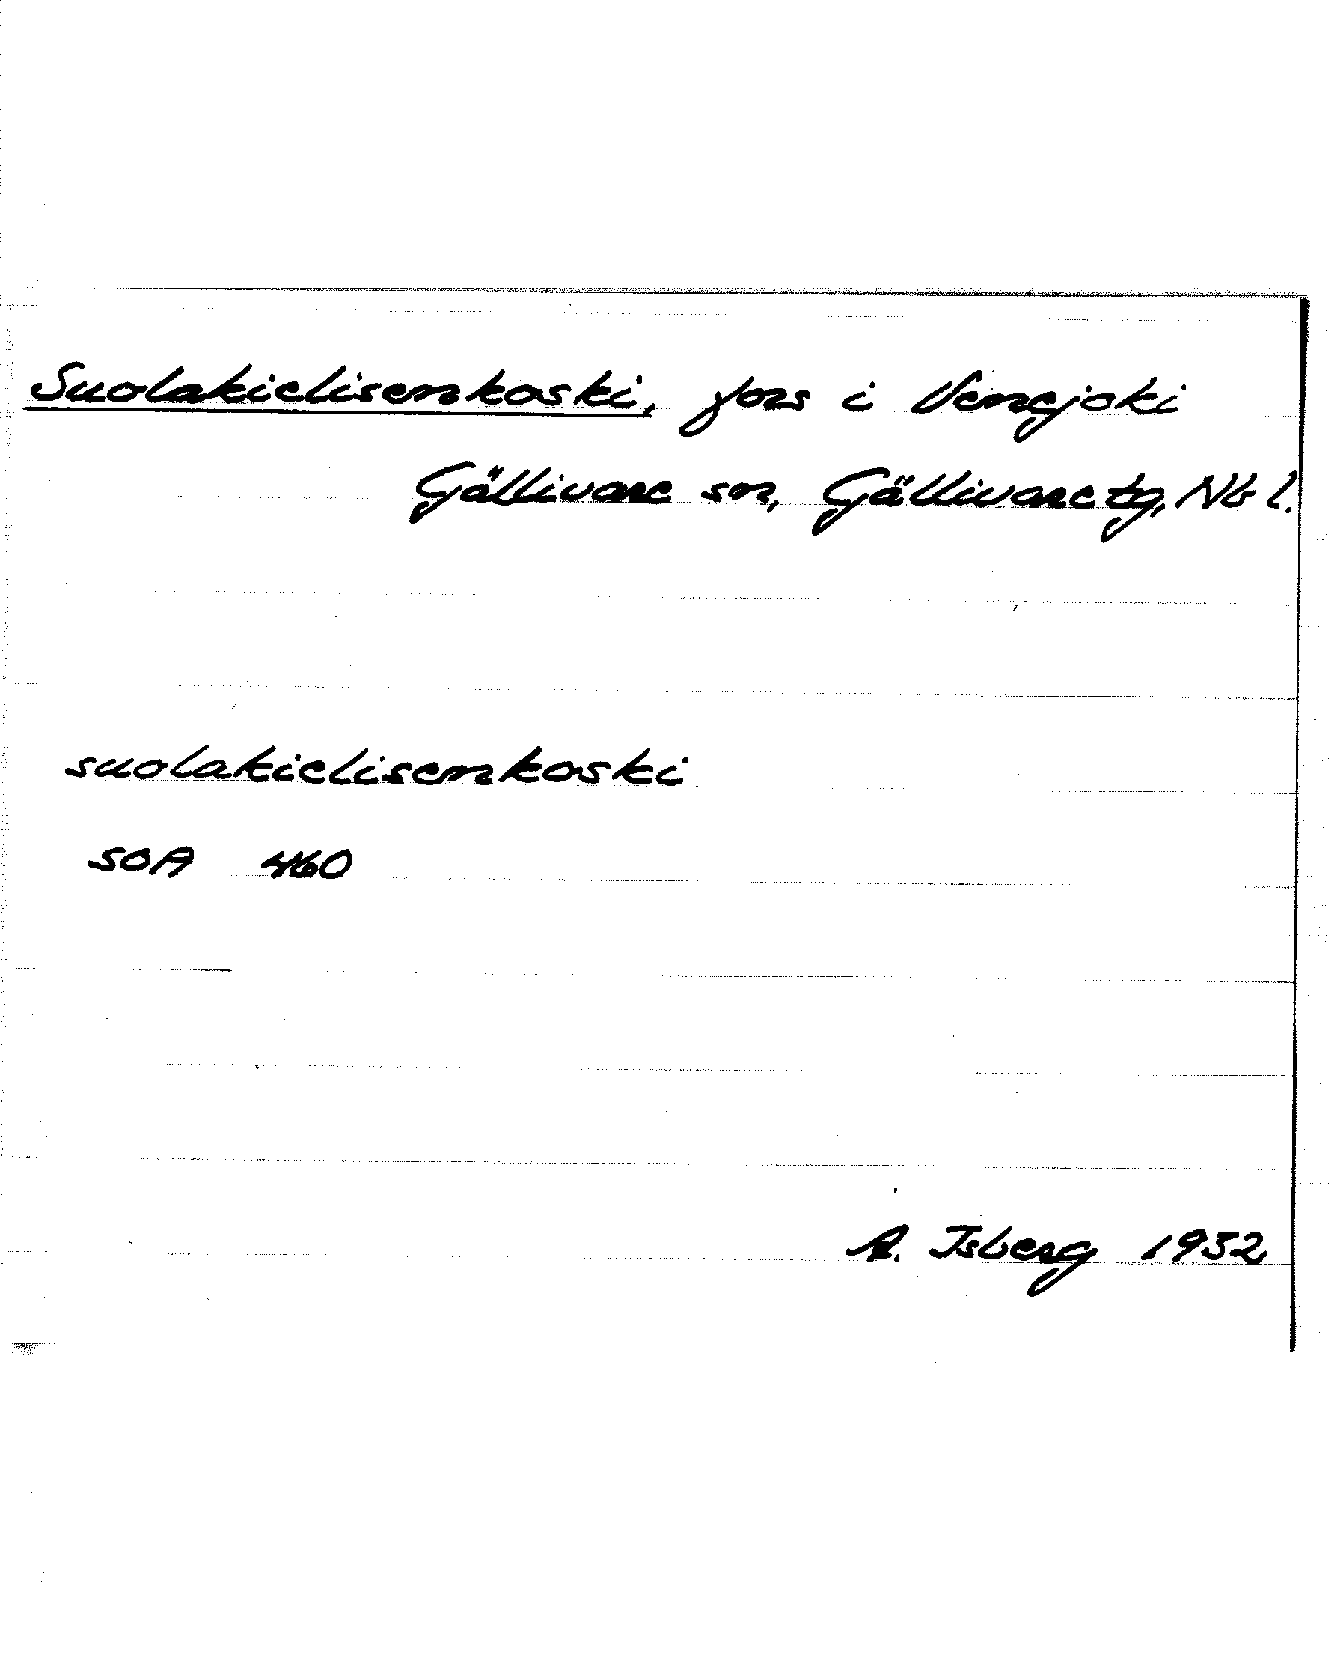 Suolakielisenkoski, fors i Venejoki
Gällivare sn, Gällivare tg, Nb l.
suolakielisenkoski
SOA 460
A. Isberg 1952